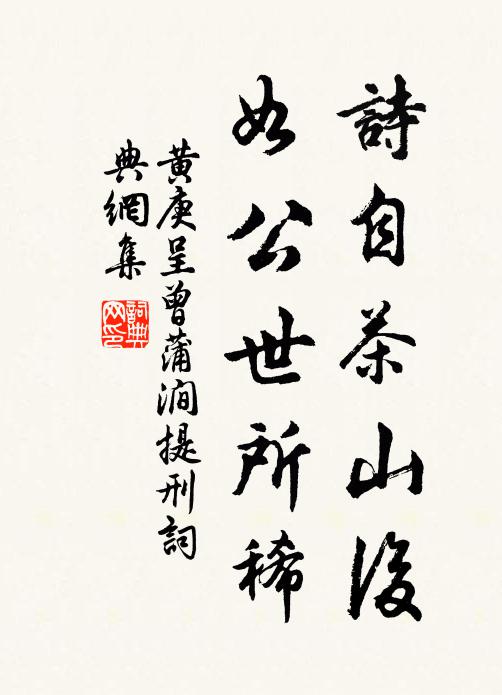 詩自茶山後
如公世所稀
黄庚呈曾蒲澗提刑詞
典網集
詞典網印